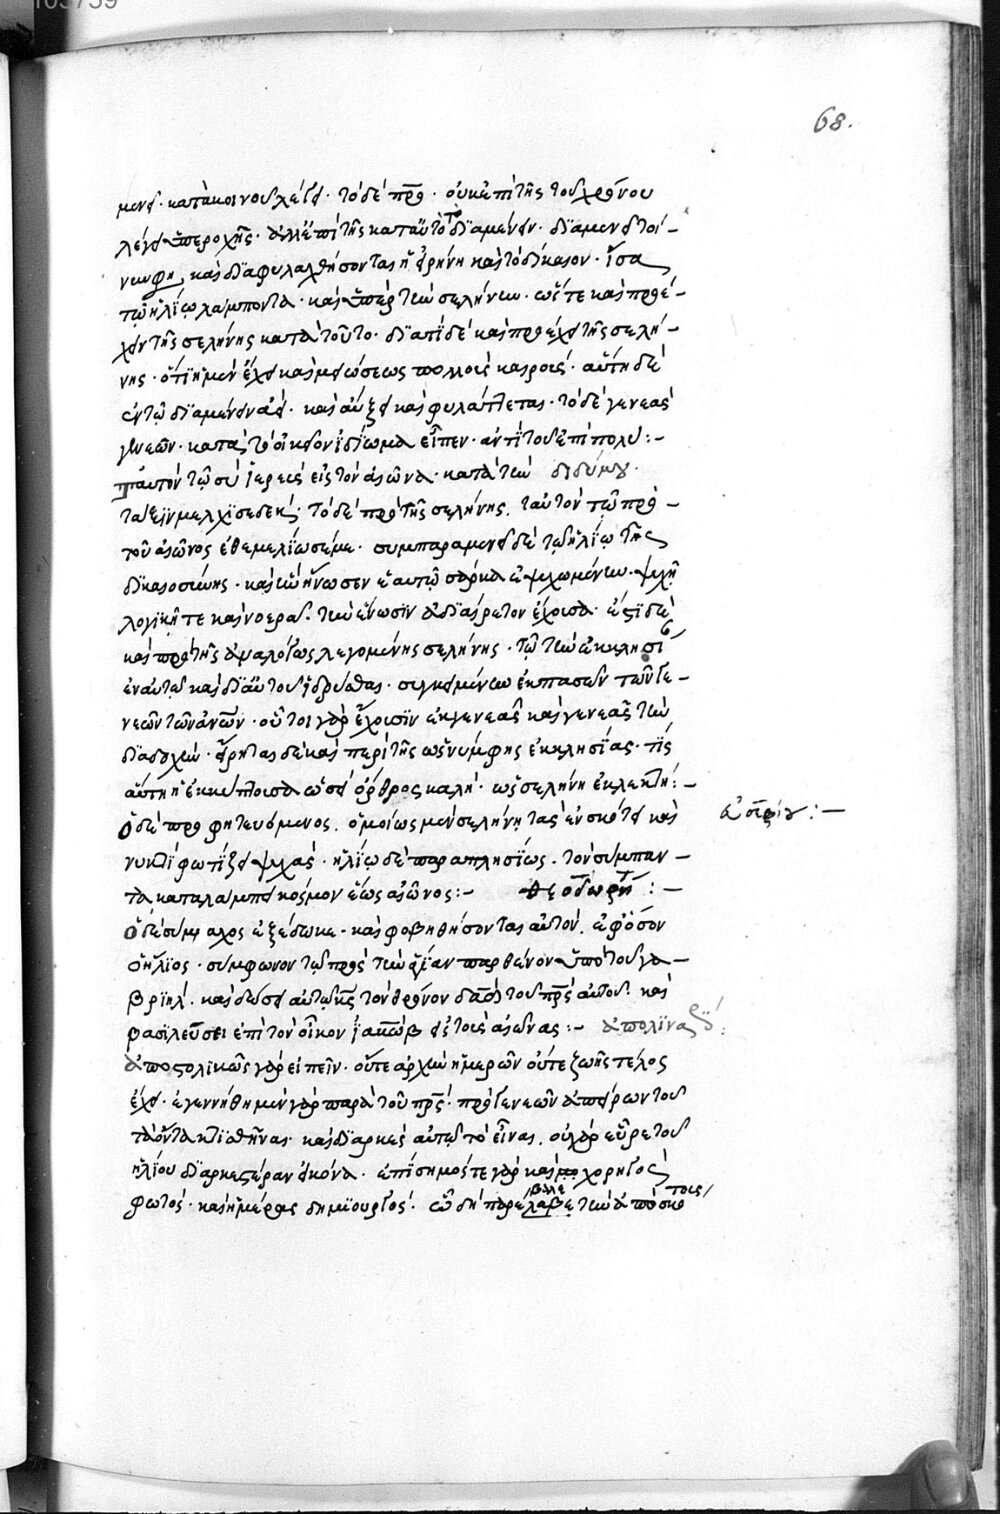 68.
μενει· κατὰ κοινοῦ λείπει· τὸ δὲ πρὸ· οὐκ ἐπὶ τῆς τοῦ χρόνου
λέγει ὑπεροχῆς· ἀλλ' ἐπὶ τῆς κατ' αὐτὸ τὸ διαμένειν· διαμενεῖ τοί-
νυν φη, καὶ διαφυλαχθήσονται ἡ εἰρήνη καὶ τὸ δίκαιον· ἴσα
τῷ ἡλίῳ λάμποντα· καὶ ὑπὲρ τὴν σελήνην· ὥστε καὶ προέ-
χειν τῆς σελήνης κατὰ τοῦτο· διατί δὲ καὶ προέχει τῆς σελή-
νης· ὅτι ἡ μὲν ἔχει καὶ μειώσεως πολλοὺς καιρούς· αὕτη δὲ
ἐν τῷ διαμένειν ἀεί· καὶ αὔξει καὶ φυλάττεται· τὸ δὲ γενεὰς
γενεῶν· κατὰ τὸ οἰκεῖον ἰδίωμα εἶπεν· ἀντὶ τοῦ ἐπὶ πολύ:-
ταυτὸν τῷ σὺ ἱερεὺς εἰς τὸν αἰῶνα· κατὰ τὴν διδύμου·
τάξιν μελχισεδέκ· τὸ δὲ πρὸ τῆς σελήνης, ταυτὸν τῷ πρὸ-
τοῦ αἰῶνος ἐθεμελίωσέ με· συμπαραμενεῖ δὲ τῷ ἡλίῳ τῆς
δικαιοσύνης· καὶ ἣν ἥνωσεν ἑαυτῷ σάρκα ἐψυχωμένην· ψυχῇ
λογικῇ τε καὶ νοερᾷ· τὴν ἕνωσιν ἀδιαίρετον ἔχουσα· ἔστι δὲ
καὶ πρὸ τῆς ἀναλόγως λεγομένης σελήνης· τῷ τὴν ἐκκλησί
ἐν αὐτῷ καὶ δι' αὐτοῦ ἱδρύσθαι· συγκειμένην ἐκ πασῶν τῶν γε-
νεῶν τῶν ἀνων· οὗτοι γὰρ ἔχουσιν ἐκ γενεᾶς καὶ γενεᾶς τὴν
διαδοχήν· εἴρηται δὲ καὶ περὶ τῆς ὡς νύμφης ἐκκλησίας· τίς
αὕτη ἡ ἐκκύπτουσα ὡσεὶ ὄρθρος καλή· ὡς σελήνη ἐκλεκτή:-
Ὁ δὲ προφητευόμενος, ὁμοίως μὲν σελήνῃ τὰς ἐν σκότει καὶ
νυκτὶ φωτίζει ψυχάς· ἡλίῳ δὲ παραπλησίως· τὸν σύμπαν-
τα καταλάμπει κόσμον ἕως αἰῶνος:- θεοδωρή:-
Ὁ δὲ σύμμαχος ἐξέδωκε· καὶ φοβηθήσονται αὐτὸν, ἐφ' ὅσον
ὁ ἥλιος· σύμφωνον τῷ πρὸς τὴν ἁγίαν παρθένον ὑπὸ τοῦ γα-
βριήλ· καὶ δώσει αὐτῷ κς τὸν θρόνον δαδ τοῦ πρς αὐτοῦ· καὶ
βασιλεύσει ἐπὶ τὸν οἶκον ἰακώβ εἰς τοὺς αἰῶνας:- ἀπολιναρί:
ἀποστολικῶς γὰρ εἰπεῖν· οὔτε ἀρχὴν ἡμερῶν οὔτε ζωῆς τέλος
ἔχει· ἐγεννήθη μὲν γὰρ παρὰ τοῦ πρς· πρὸ γενεῶν ἀπείρων τοῦ
τὰ ὄντα κτισθῆναι· καὶ διαρκὲς αὐτῷ τὸ εἶναι, οὐ γὰρ εὗρε τοῦ
ἡλίου διαρκεστέραν εἰκόνα· ἐπίσημός τε γὰρ καὶ χορηγὸς
φωτός· καὶ ἡμέρας δημιουργός· ᾧ δὴ παρέλαβε βαλε τὴν ἀπὸ σκό τους
εὐσεβίου:-